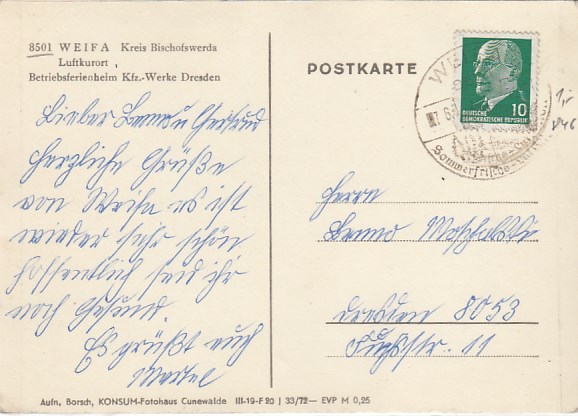 8501 WEIFA Kreis Bischofswerda
Luftkurort
Betriebsferienheim Kfz.-Werke Dresden
Lieber Benno u Gertrud
herzliche Grüße
von Weifa es ist
wieder sehr schön
hoffentlich seid ihr
noch gesund.
Es grüßt euch
POSTKARTE
DEUTSCHE
DEMOKRATISCHE REPUBLIK
10
Sommerfrische
1,-
Herrn
Benno
Dresden 8053
11
Aufn. Borsch, KONSUM-Fotohaus Cunewalde III-19-F 20 J 33/72— EVP M 0,25